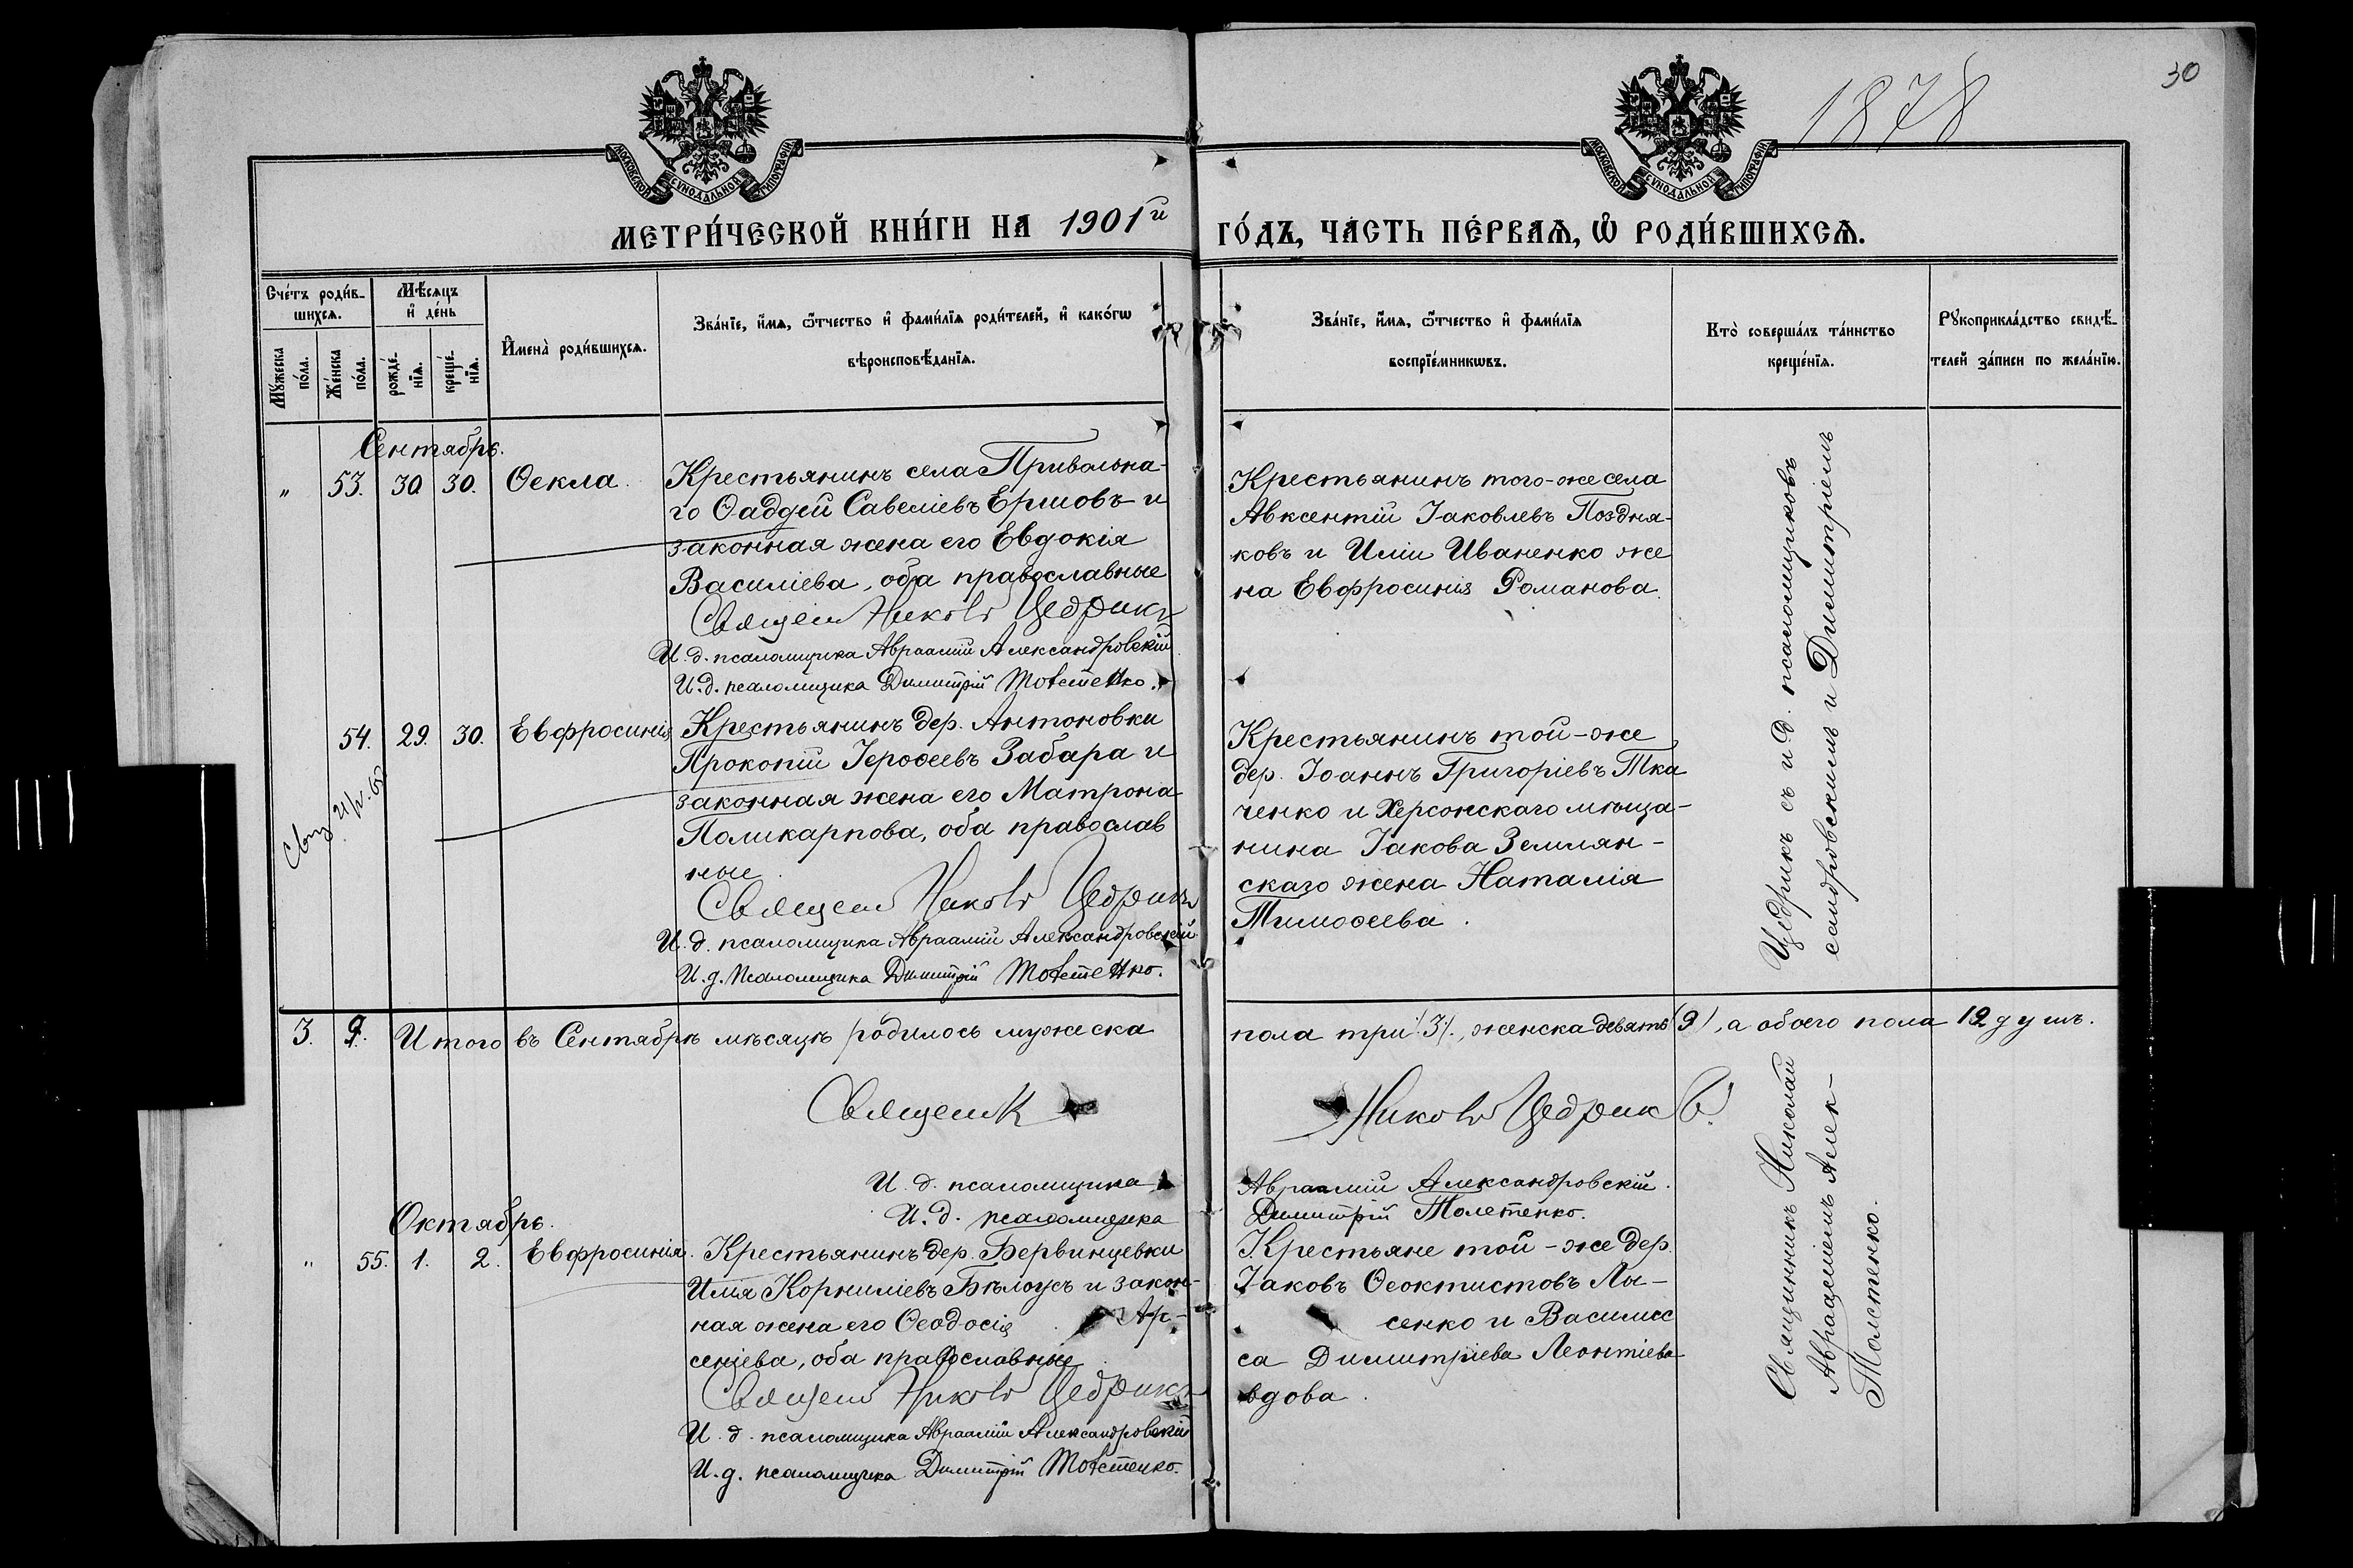 30
1878
МОСКОВСКОЙ СѴНОДАЛЬНОЙ ТИПОГРАФІИ
МОСКОВСКОЙ СѴНОДАЛЬНОЙ ТИПОГРАФІИ
МЕТРИ́ЧЕСКОЙ КНИ́ГИ НА 1901й ГО́ДЪ, ЧА́СТЬ ПЕ́РВАѦ, Ѽ РОДИ́ВШИХСѦ.
Сче́тъ роди́в-
шихсѧ.
Мѣ́сѧцъ
и҆ де́нь
Мꙋ́жеска
по́ла.
Же́нска
по́ла.
рожде́-
нїѧ.
креще́-
нїѧ.
И҆мена̀ роди́вшихсѧ.
Зва́нїе, и҆́мѧ, ѻ҆́тчество и҆ фами́лїѧ роди́телей, и҆ како́гѡ
вѣроисповѣ́данїѧ.
Зва́нїе, и҆́мѧ, ѻ҆́тчество и҆ фами́лїѧ
воспрїе́мникѡвъ.
Кто̀ соверша́лъ та́инство
креще́нїѧ.
Рꙋкоприкла́дство свидѣ́-
телей за́писи по жела́нїю.
Сентябрь.
" 53. 30. 30. Ѳекла.
Крестьянинъ села Привольна-
го Ѳаддей Савеліевъ Ершовъ и
законная жена его Евдокія
Василіева, оба православные
Священ Никол Цедрикъ
И. д. псаломщика Авраамій Александровскій
И. д. псаломщика Димитрій Толстенко.
Крестьянинъ того-же села
Авксентій Іаковлевъ Поздня-
ковъ и Иліи Иваненко же
на Евфросинія Романова.
54. 29. 30. Евфросинія
Крестьянинъ дер. Антоновки
Прокопій Іероѳеевъ Забара и
законная жена его Матрона
Поликарпова, оба православ
ные.
Священ Никол Цедрикъ
И. д. псаломщика Авраамій Александровскій
И. д. Псаломщика Димитрій Толстенко.
Крестьянинъ той-же
дер. Іоаннъ Григоріевъ Тка
ченко и Херсонскаго мѣща-
нина Іакова Землян-
скаго жена Наталія
Тимоѳеева.
Цедрикъ съ и д. псаломщиковъ
сандровскимъ и Димитріемъ
3. 9. Итого въ Сентябрѣ мѣсяцѣ родилось мужеска пола три /3/, женска девять (9), а обоего пола 12 душъ.
Священик Никол Цедрикъ.
И. д. псаломщика Авраамій Александровскій.
И. д. псаломщика Димитрій Толстенко.
Октябрь.
" 55. 1. 2. Евфросинія.
Крестьянинъ дер. Бервинцевки
Илія Корниліевъ Бѣлоусъ и закон-
ная жена его Ѳеодосія Ар-
сеніева, оба православные
Священ Никол Цедрикъ
И. д. псаломщика Авраамій Александровскій
И. д. псаломщика Димитрій Толстенко.
Крестьяне той-же дер.
Іаковъ Ѳеоктистовъ Лы-
сенко и Василис
са Димитріева Леонтіева
вдова.
Священникъ Николай
Авраамiемъ Алек-
Толстенко.